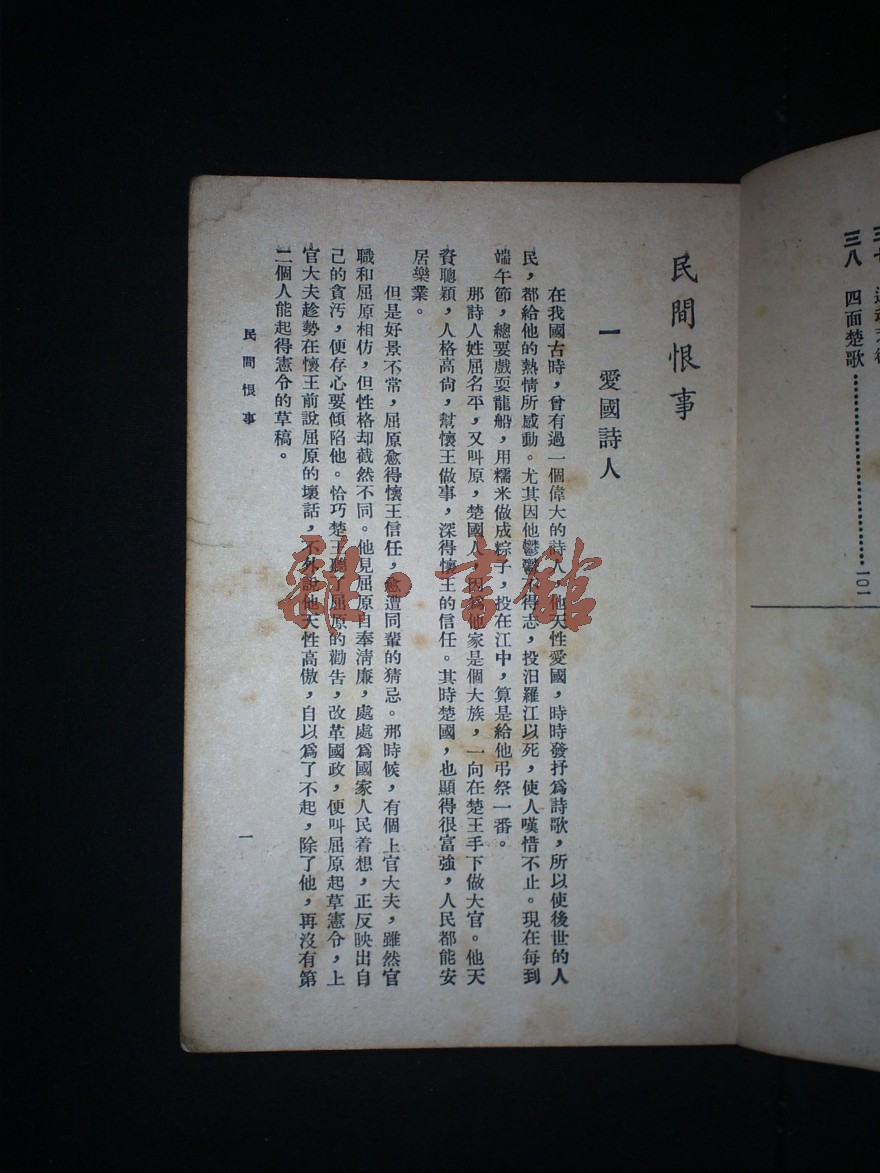 三八 四面楚歌⋯⋯⋯⋯⋯⋯⋯⋯一〇一
民間恨事
一 愛國詩人
在我國古時，曾有過一個偉大的詩人，他天性愛國，時時發抒爲詩歌，所以使後世的人
民，都給他的熱情所感動。尤其因他鬱鬱不得志，投汨羅江以死，使人嘆惜不止。現在每到
端午節，總要戲耍龍船，用糯米做成粽子，投在江中，算是給他弔祭一番。
那詩人姓屈名平，又叫原，楚國人，因爲他家是個大族，一向在楚王手下做大官。他天
資聰穎，人格高尚，幫懷王做事，深得懷王的信任。其時楚國，也顯得很富強，人民都能安
居樂業。
但是好景不常，屈原愈得懷王信任，愈遭同輩的猜忌。那時候，有個上官大夫，雖然官
職和屈原相仿，但性格却截然不同。他見屈原自奉清廉，處處爲國家人民着想，正反映出自
己的貪汚，便存心要傾陷他。恰巧楚王聽了屈原的勸告，改革國政，便叫屈原起草憲令，上
官大夫趁勢在懷王前說屈原的壞話，不外說他天性高傲，自以爲了不起，除了他，再沒有第
二個人能起得憲令的草稿。
民間恨事
一
雜·書館